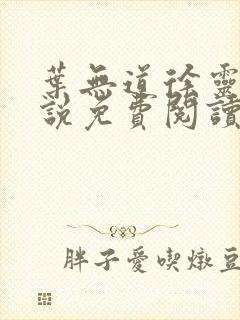 葉無道徐靈
說免費閱讀
胖子愛喫燉豆